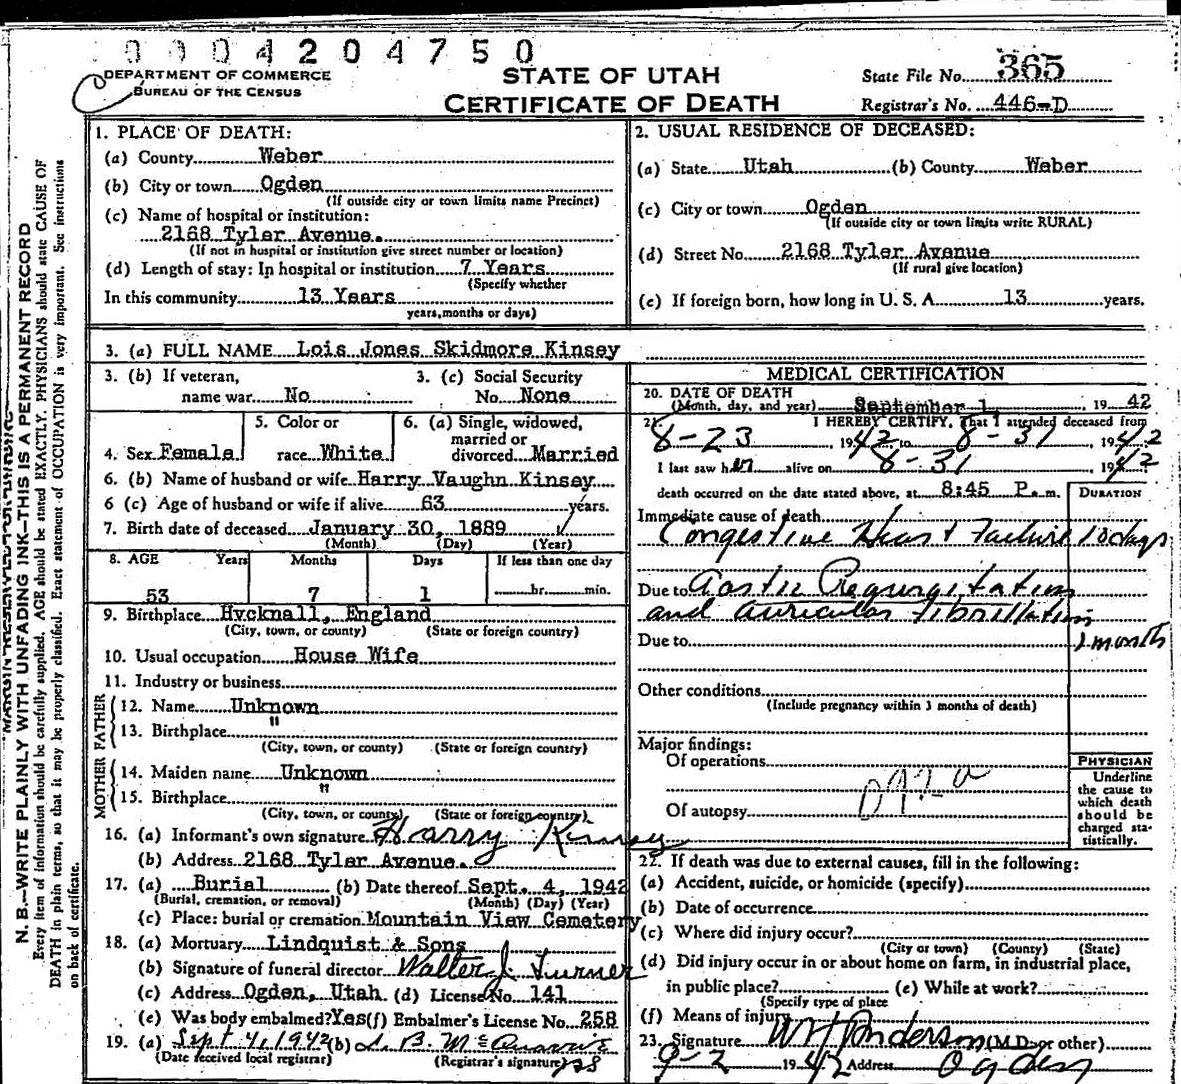 0004204750
DEPARTMENT OF COMMERCE
BUREAU OF THE CENSUS
STATE OF UTAH
CERTIFICATE OF DEATH
State File No. 365
Registrar's No. 446-D
N. B.—WRITE PLAINLY WITH UNFADING INK—THIS IS A PERMANENT RECORD
Every item of information should be carefully supplied. AGE should be stated EXACTLY. PHYSICIANS should state CAUSE OF
DEATH in plain terms, so that it may be properly classified. Exact statement of OCCUPATION is very important. See instructions
on back of certificate.
1. PLACE OF DEATH:
(a) County Weber
(b) City or town Ogden
(If outside city or town limits name Precinct)
(c) Name of hospital or institution:
2168 Tyler Avenue.
(If not in hospital or institution give street number or location)
(d) Length of stay: In hospital or institution 7 Years
(Specify whether
In this community 13 Years
years, months or days)
2. USUAL RESIDENCE OF DECEASED:
(a) State Utah (b) County Weber
(c) City or town Ogden
(If outside city or town limits write RURAL)
(d) Street No. 2168 Tyler Avenue
(If rural give location)
(e) If foreign born, how long in U. S. A. 13 years.
3. (a) FULL NAME Lois Jones Skidmore Kinsey
3. (b) If veteran, 3. (c) Social Security
name war No No. None
5. Color or 6. (a) Single, widowed,
married or
4. Sex Female race White divorced Married
6. (b) Name of husband or wife Harry Vaughn Kinsey
6 (c) Age of husband or wife if alive 63 years.
7. Birth date of deceased January 30, 1889
(Month) (Day) (Year)
8. AGE Years Months Days If less than one day
53 7 1 hr. min.
9. Birthplace Hvcknall, England
(City, town, or county) (State or foreign country)
10. Usual occupation House Wife
11. Industry or business
FATHER
12. Name Unknown
13. Birthplace "
(City, town, or county) (State or foreign country)
MOTHER
14. Maiden name Unknown
15. Birthplace "
(City, town, or county) (State or foreign country)
16. (a) Informant's own signature Harry Kinsey
(b) Address 2168 Tyler Avenue.
17. (a) Burial (b) Date thereof Sept. 4, 1942
(Burial, cremation, or removal) (Month) (Day) (Year)
(c) Place: burial or cremation Mountain View Cemetery
18. (a) Mortuary Lindquist & Sons
(b) Signature of funeral director Walter J. Turner
(c) Address Ogden, Utah. (d) License No. 141
(e) Was body embalmed? Yes (f) Embalmer's License No. 258
19. (a) Sept 4, 1942 (b)
(Date received local registrar) (Registrar's signature)
MEDICAL CERTIFICATION
20. DATE OF DEATH
(Month, day, and year) September 1, 1942
21. I HEREBY CERTIFY, That I attended deceased from
8-23 1942 to 8-31 1942
I last saw her alive on 8-31 1942
death occurred on the date stated above, at 8:45 P. m. DURATION
Immediate cause of death
Congestive Heart Failure 10 days
Due to Aortic Regurgitation
and auricular fibrillation
Due to 1 month
Other conditions
(Include pregnancy within 3 months of death)
Major findings:
Of operations
Of autopsy
092a
PHYSICIAN
Underline
the cause to
which death
should be
charged sta-
tistically.
22. If death was due to external causes, fill in the following:
(a) Accident, suicide, or homicide (specify)
(b) Date of occurrence
(c) Where did injury occur?
(City or town) (County) (State)
(d) Did injury occur in or about home on farm, in industrial place,
in public place? (e) While at work?
(Specify type of place
(f) Means of injury
23. Signature W H Anderson (M.D. or other)
9-2 1942 Address Ogden